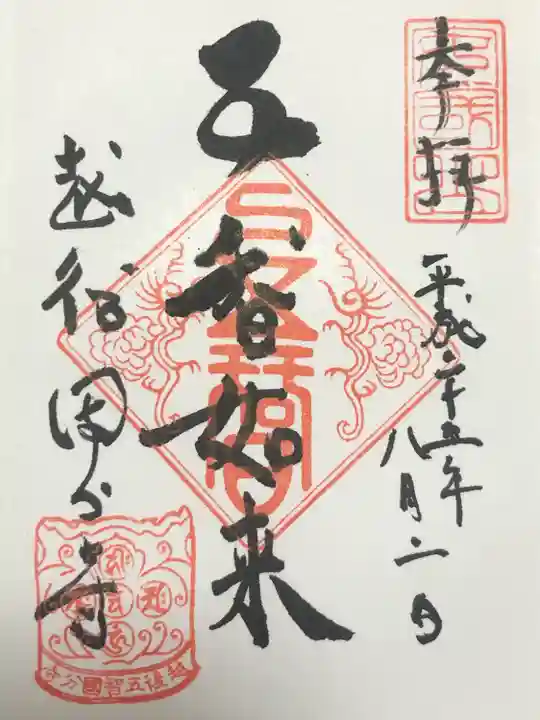 奉拝
平成二十五年
八月二日
五智如来
越後国分寺
越後五智國分寺